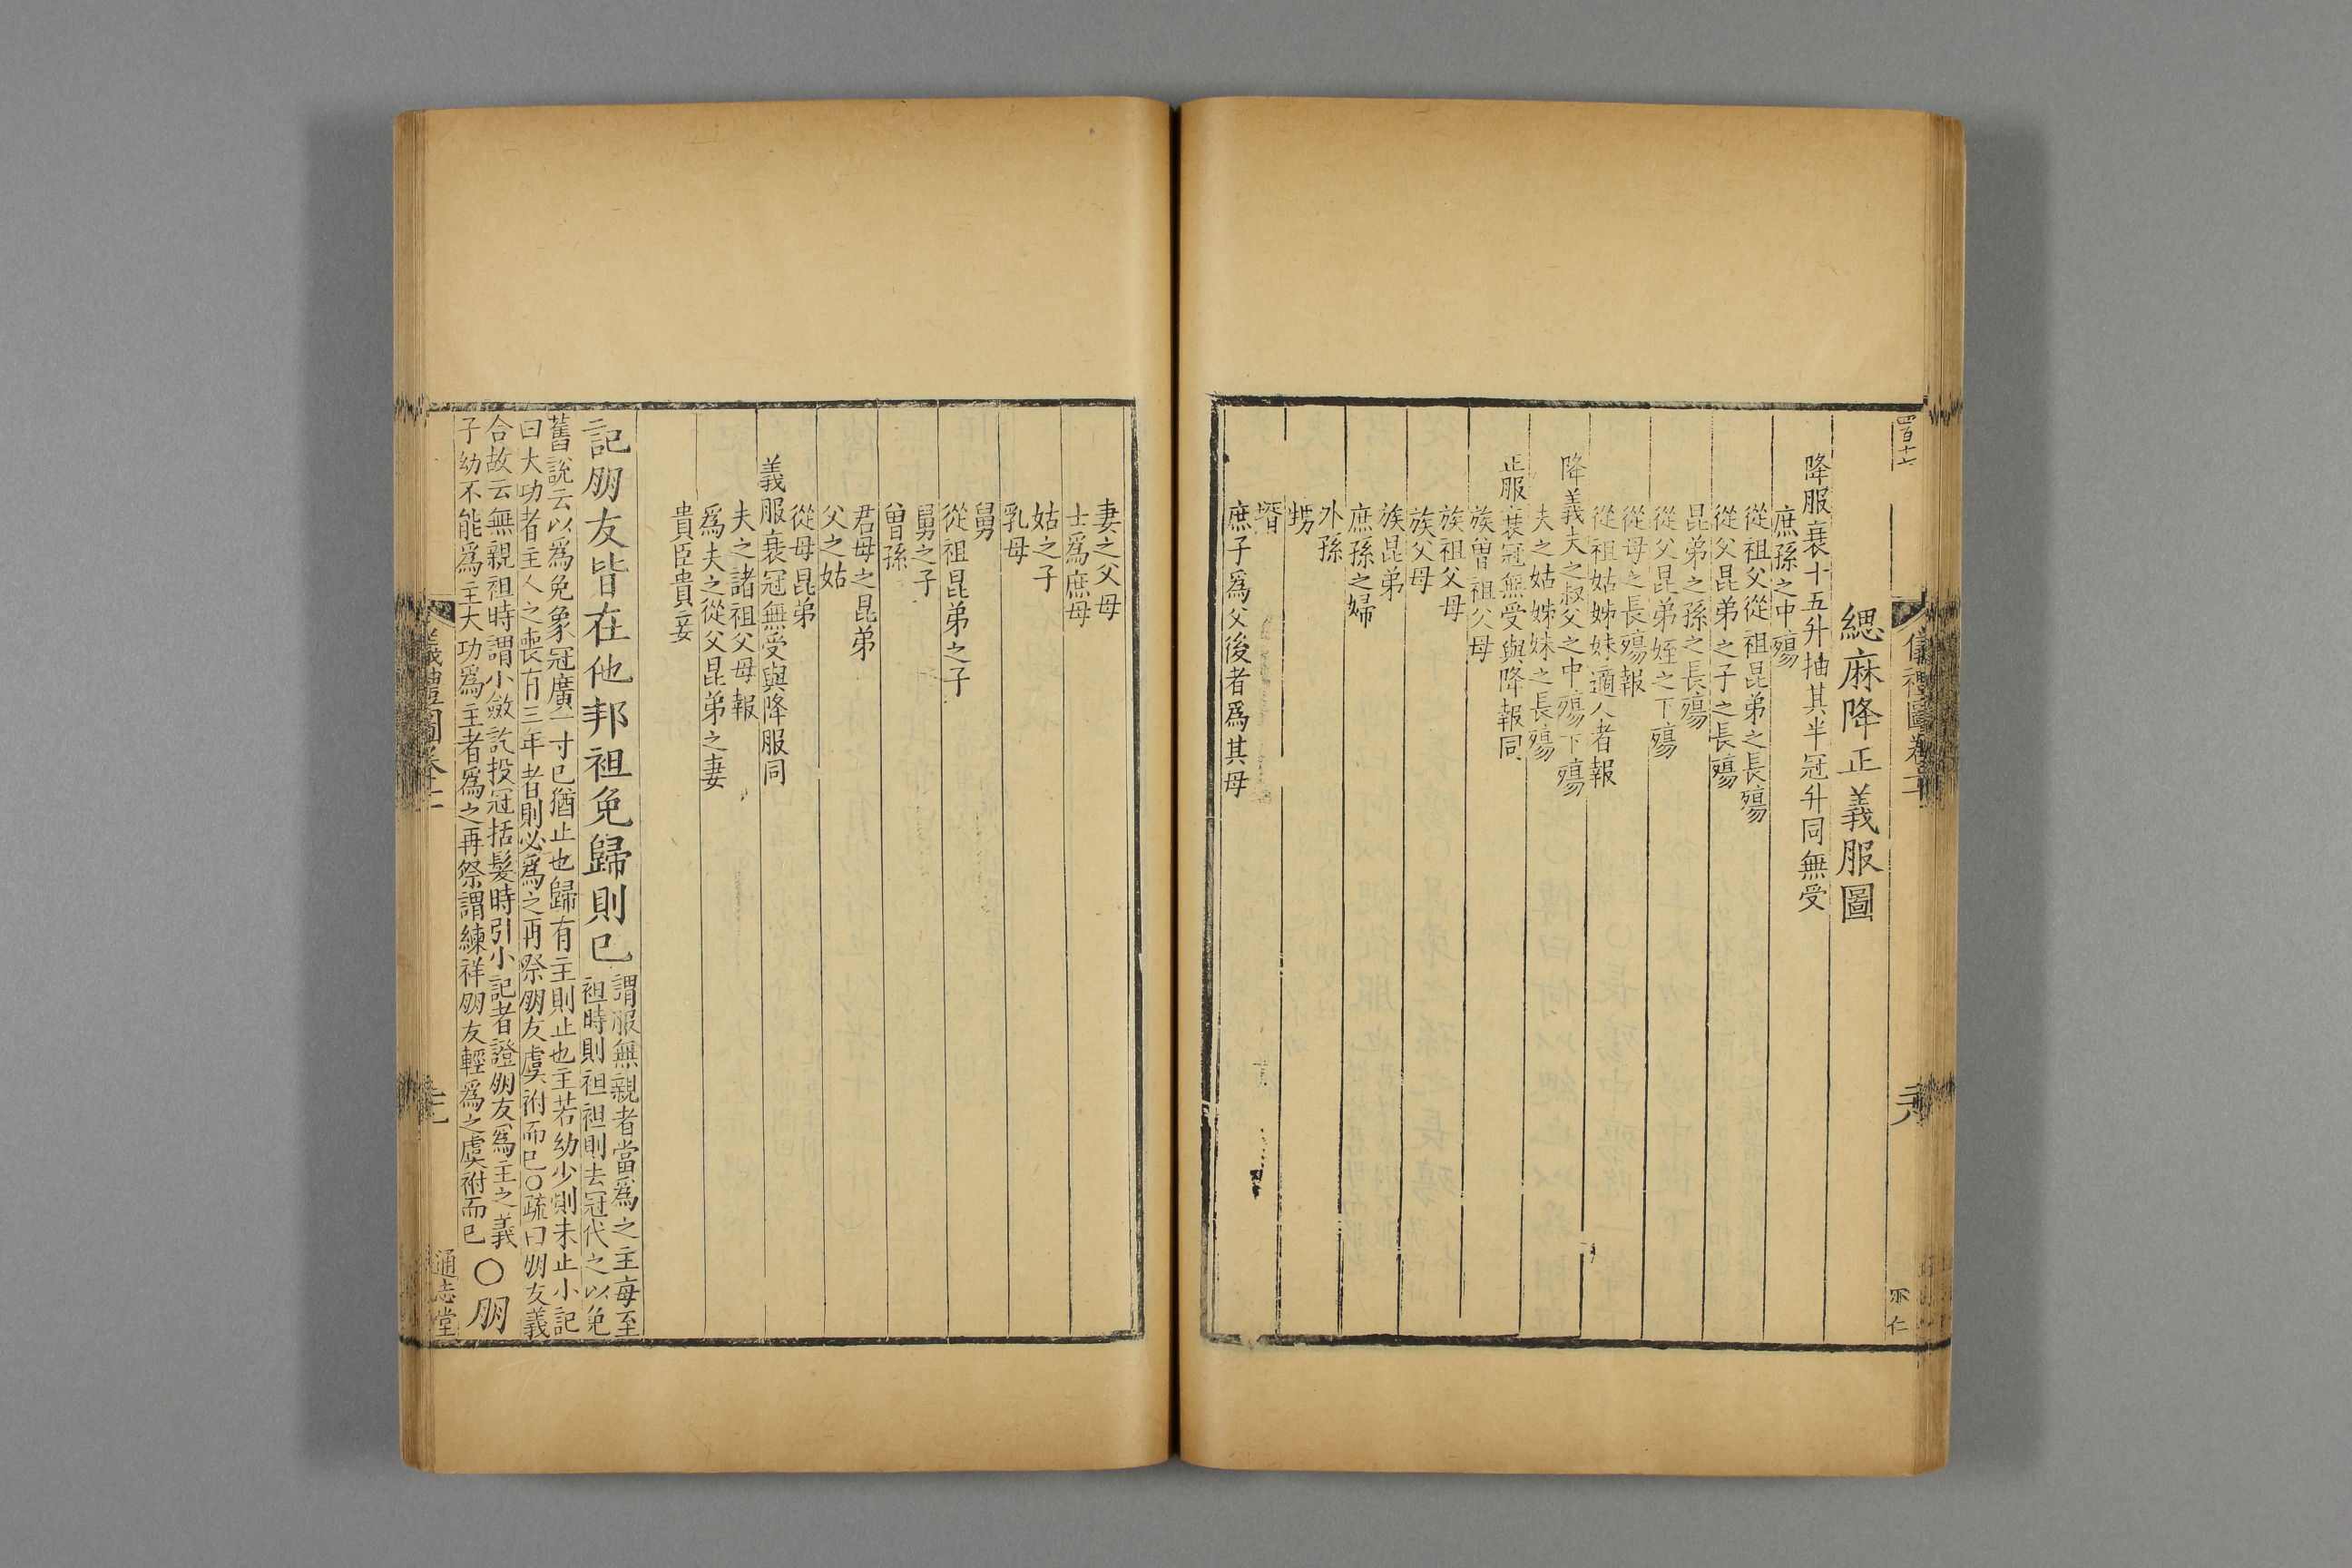 四百十六
儀禮圖卷十一
緦麻降正義服圖
降服衰十五升抽其半冠升同無受
庶孫之中殤
從祖父從祖昆弟之長殤
從父昆弟之子之長殤
昆弟之孫之長殤
從父昆弟姪之下殤
從母之長殤報
從祖姑姊妹適人者報
降義夫之叔父之中殤下殤
夫之姑姊妹之長殤
正服衰冠無受與降報同
族曾祖父母
族祖父母
族父母
族昆弟
庶孫之婦
外孫
甥
壻
庶子爲父後者爲其母
妻之父母
士爲庶母
姑之子
乳母
舅
從祖昆弟之子
舅之子
曾孫
君母之昆弟
父之姑
從母昆弟
義服衰冠無受與降服同
夫之諸祖父母報
爲夫之從父昆弟之妻
貴臣貴妾
記朋友皆在他邦袒免歸則已
謂服無親者當爲之主每至
袒時則袒袒則去冠代之以免
舊說云以爲免象冠廣一寸已猶止也歸有主則止也主若幼少則未止小記
曰大功者主人之喪有三年者則必爲之再祭朋友虞祔而已○疏曰朋友義
合故云無親袒時謂小斂訖投冠括髮時引小記者證朋友爲主之義
子幼不能爲主大功爲主者爲之再祭謂練祥朋友輕爲之虞祔而已
○朋
儀禮圖卷十一
通志堂